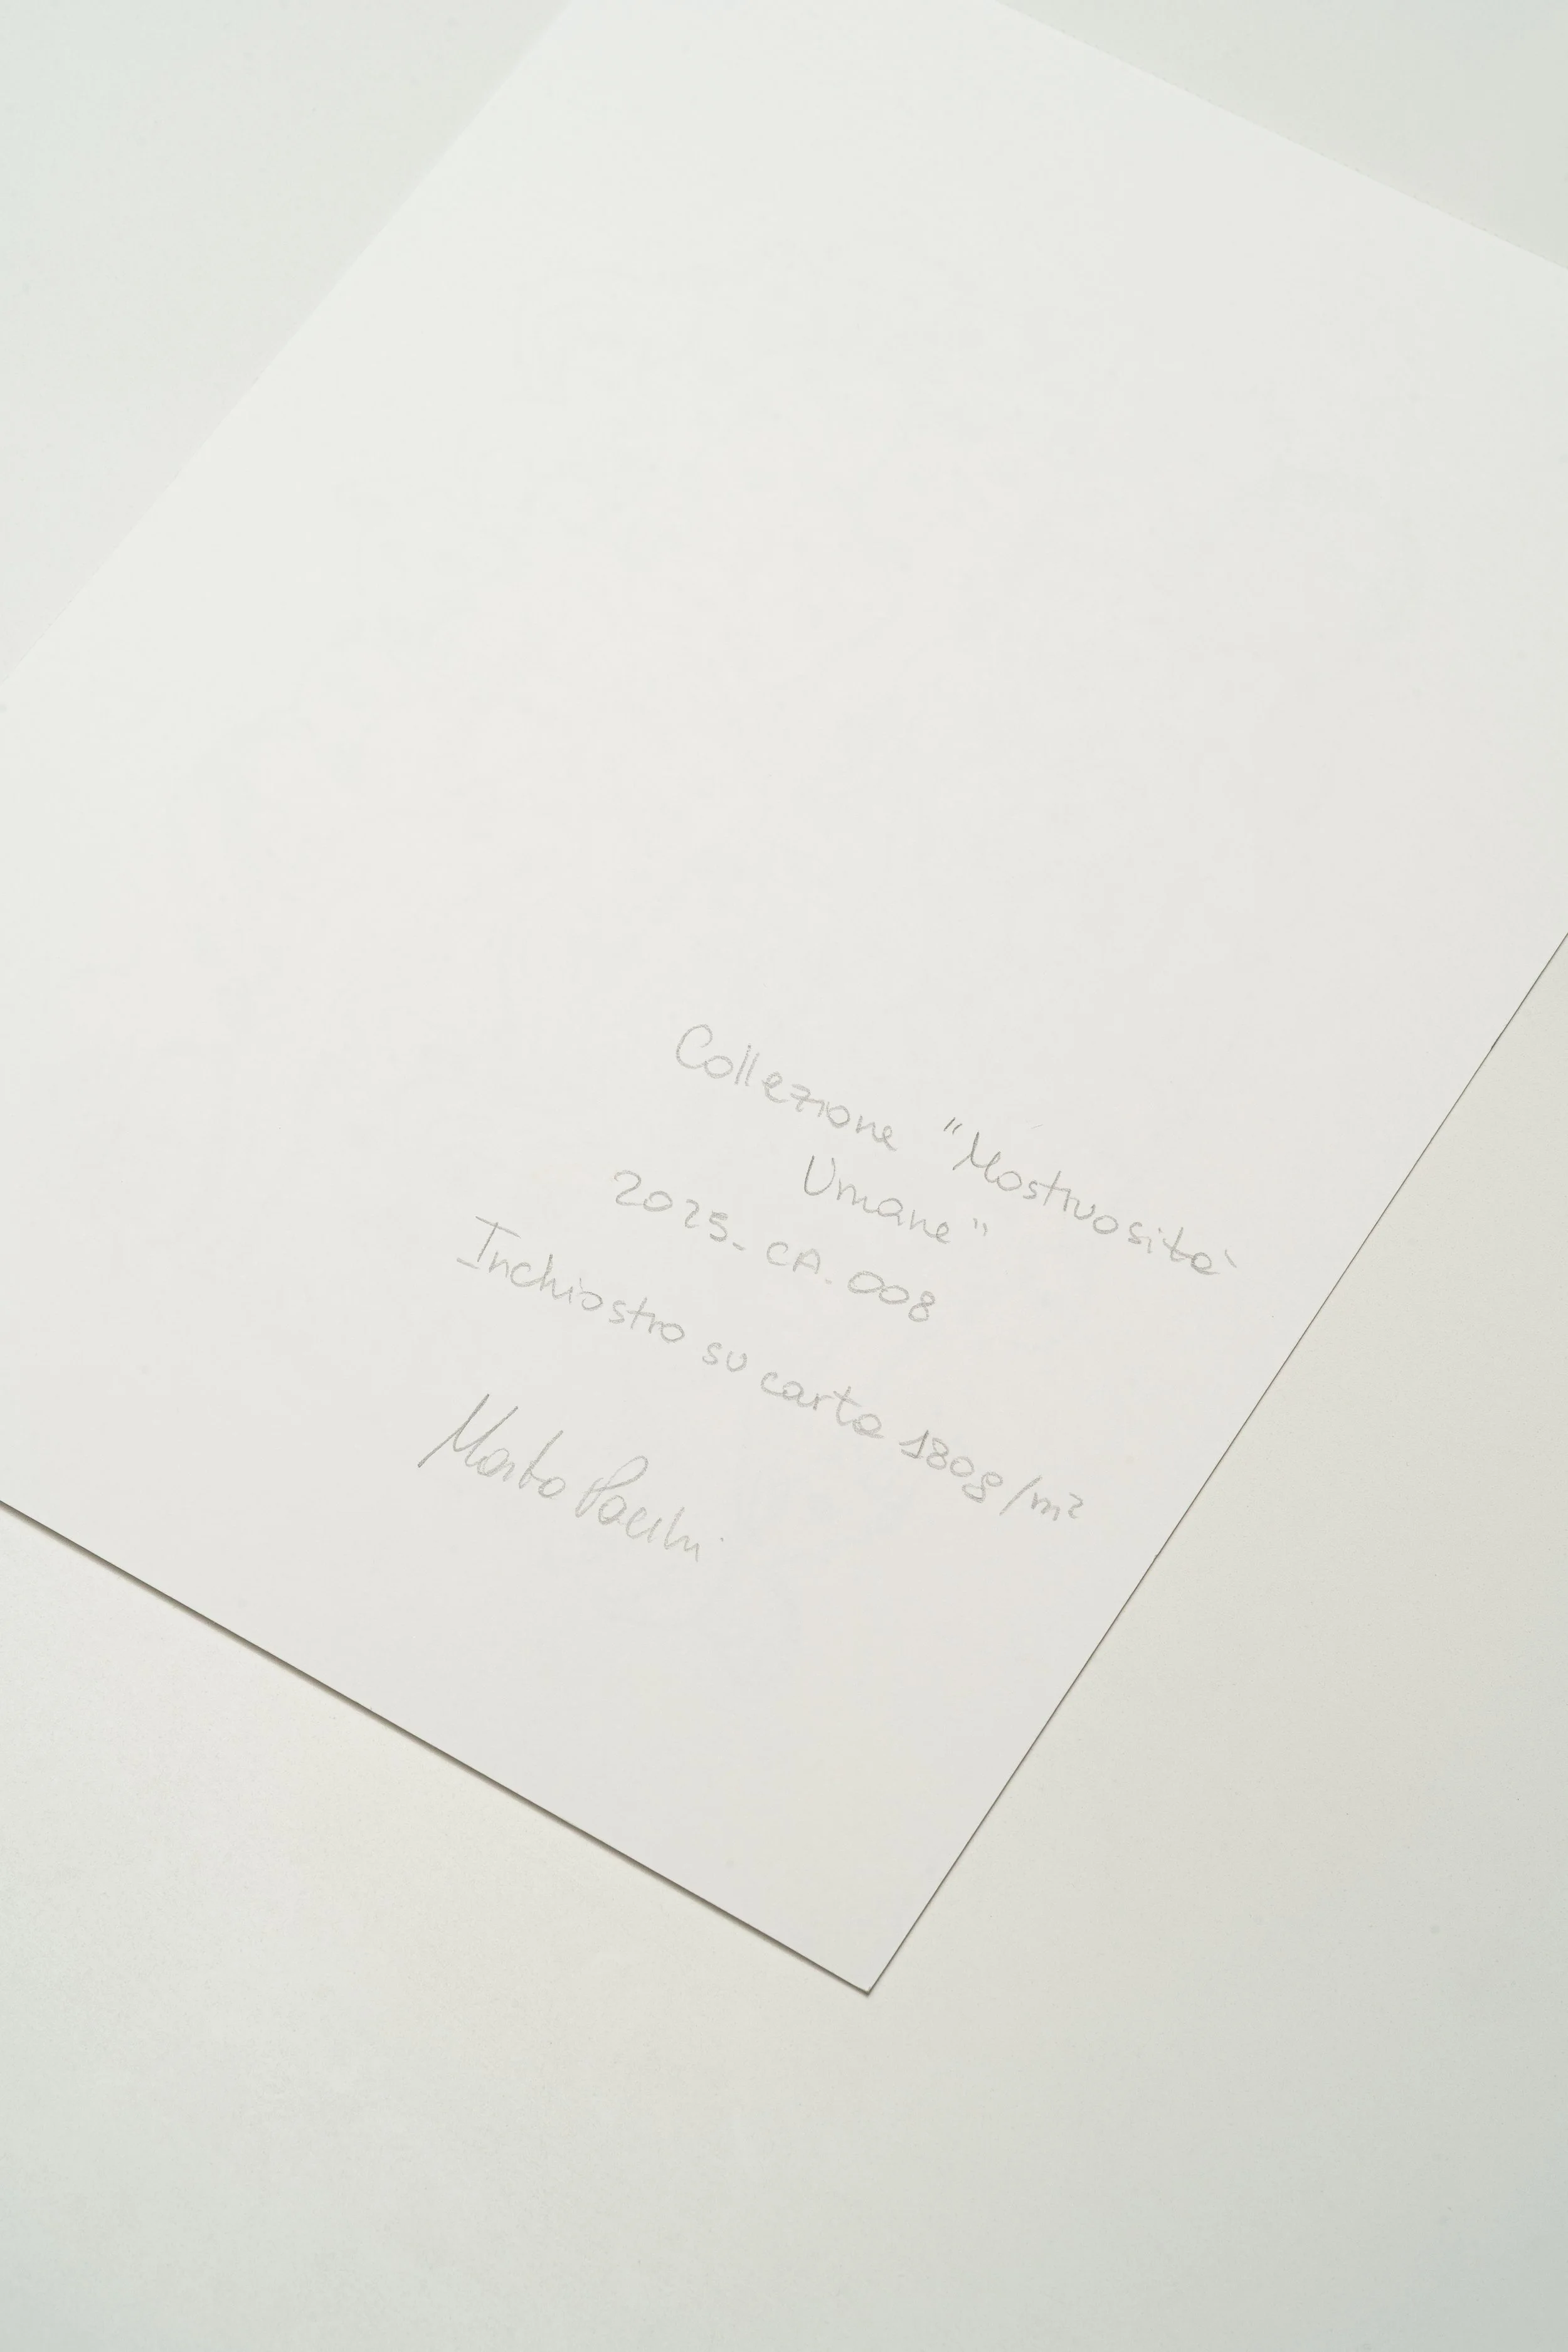 Collezione "Mostruosità
Umane"
2025-CA.008
Inchiostro su carta 180g/m²
Marta